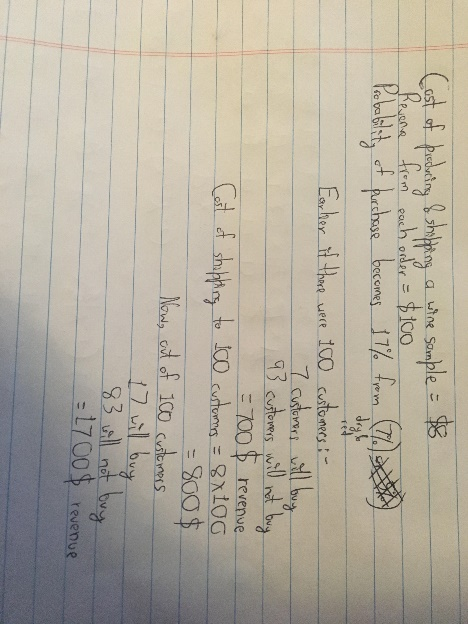 Cost of producing & shipping a wine sample = $8
Revene from each order = $100
Probability of purchase becomes 17% from (7%)
dry & red
Earlier if there were 100 customers:-
7 customers will buy
93 customers will not buy
= 700$ revenue
Cost of shipping to 100 customers = 8x100
= 800$
Now, out of 100 customers
17 will buy
83 will not buy
= 1700$ revenue